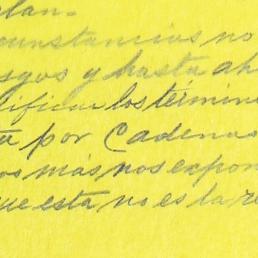 plan.
cunstancias no
sgos y hasta ah
dificar los términ
a por Cadenas
os más nos expon
que esta no es la re